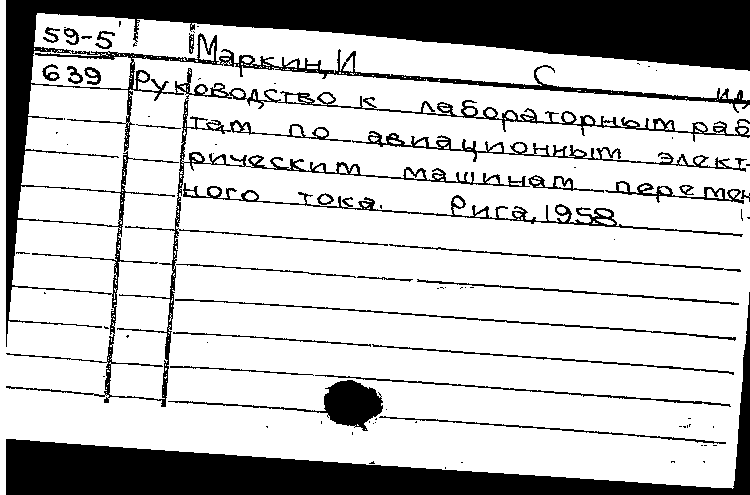 59-5 Маркин, И С
639 Руководство к лабораторным раб
там по авиационным элект-
рическим машинам перемен
ного тока. Рига, 1958.